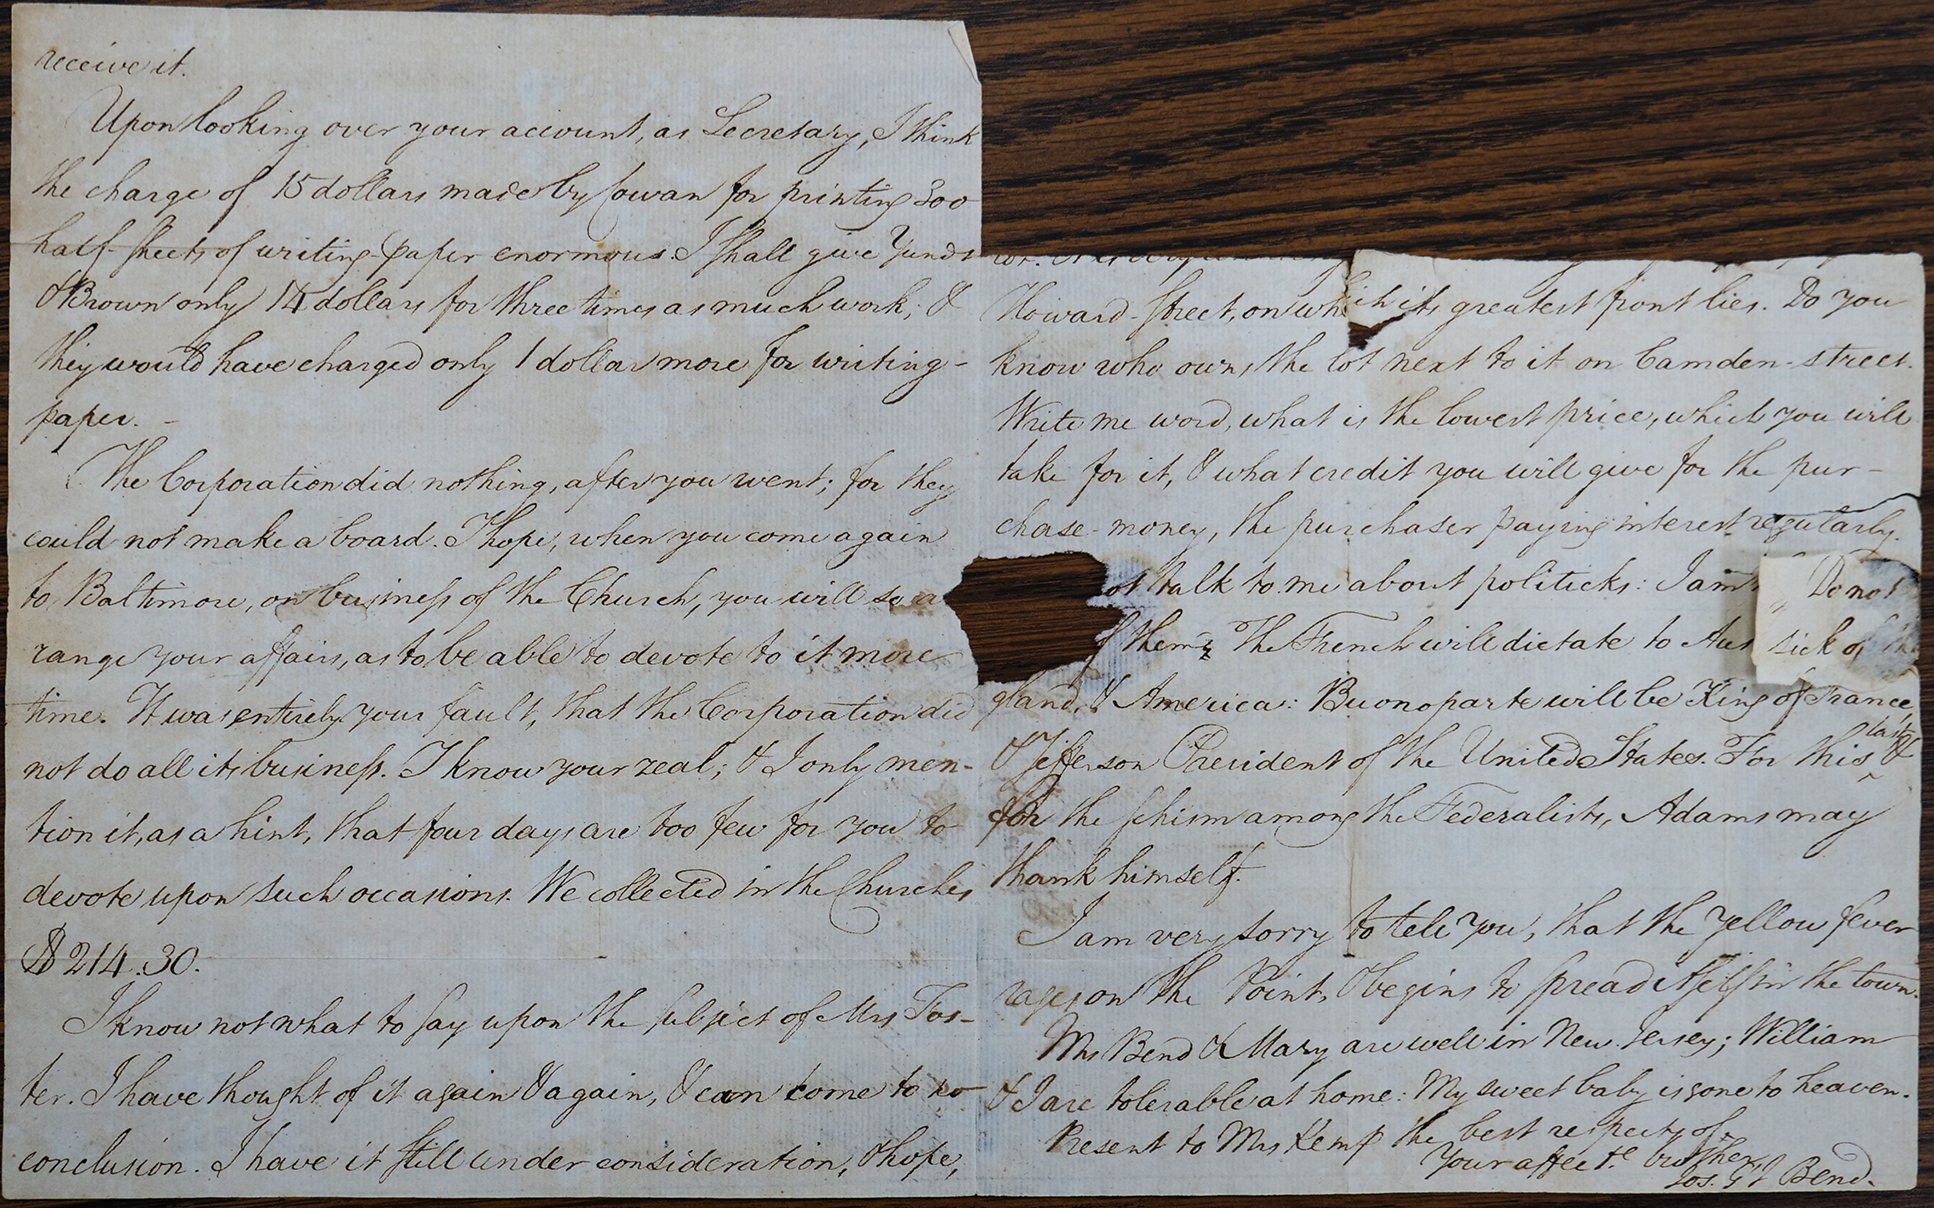 receive it.
Upon looking over your account, as Secretary, I think
the charge of 15 dollars made by Cowan for printing 300
half-sheets of writing-paper enormous. I shall give Yundt
& Brown only 14 dollars for three times as much work; &
they would have charged only 1 dollar more for writing-
paper. -
The Corporation did nothing, after you went; for they
could not make a board. I hope, when you come again
to Baltimore, on business of the Church, you will so a
range your affairs, as to be able to devote to it more
time. It was entirely your fault, that the Corporation did
not do all its business. I know your zeal; & I only men-
tion it, as a hint, that four days are too few for you to
devote upon such occasions. We collected in the Churches
$214.30.
I know not what to say upon the subject of Mrs Fos-
ter. I have thought of it again & again, & can come to no
conclusion. I have it still under consideration, & hope,
Howard-street, on which its greatest front lies. Do you
know who owns the lot next to it on Camden-street.
Write me word, what is the lowest price, which you will
take for it, & what credit you will give for the pur-
chase-money, the purchaser paying interest regularly.
ot talk to me about politicks: I am Do not
f them. The French will dictate to Aus sick of the
gland, & America: Buonoparte will be King of France,
& Jefferson President of the United States. For this last, &
for the schism among the Federalists, Adams may
thank himself.
I am very sorry to tell you, that the yellow fever
rages on the Point, & begins to spread itself in the town.
Mrs Bend & Mary are well in New-Jersey; William
& I are tolerable at home: My sweet baby is gone to heaven.
Present to Mrs Kemp the best respects of
Your affecte. brother,
Jos. G J Bend.